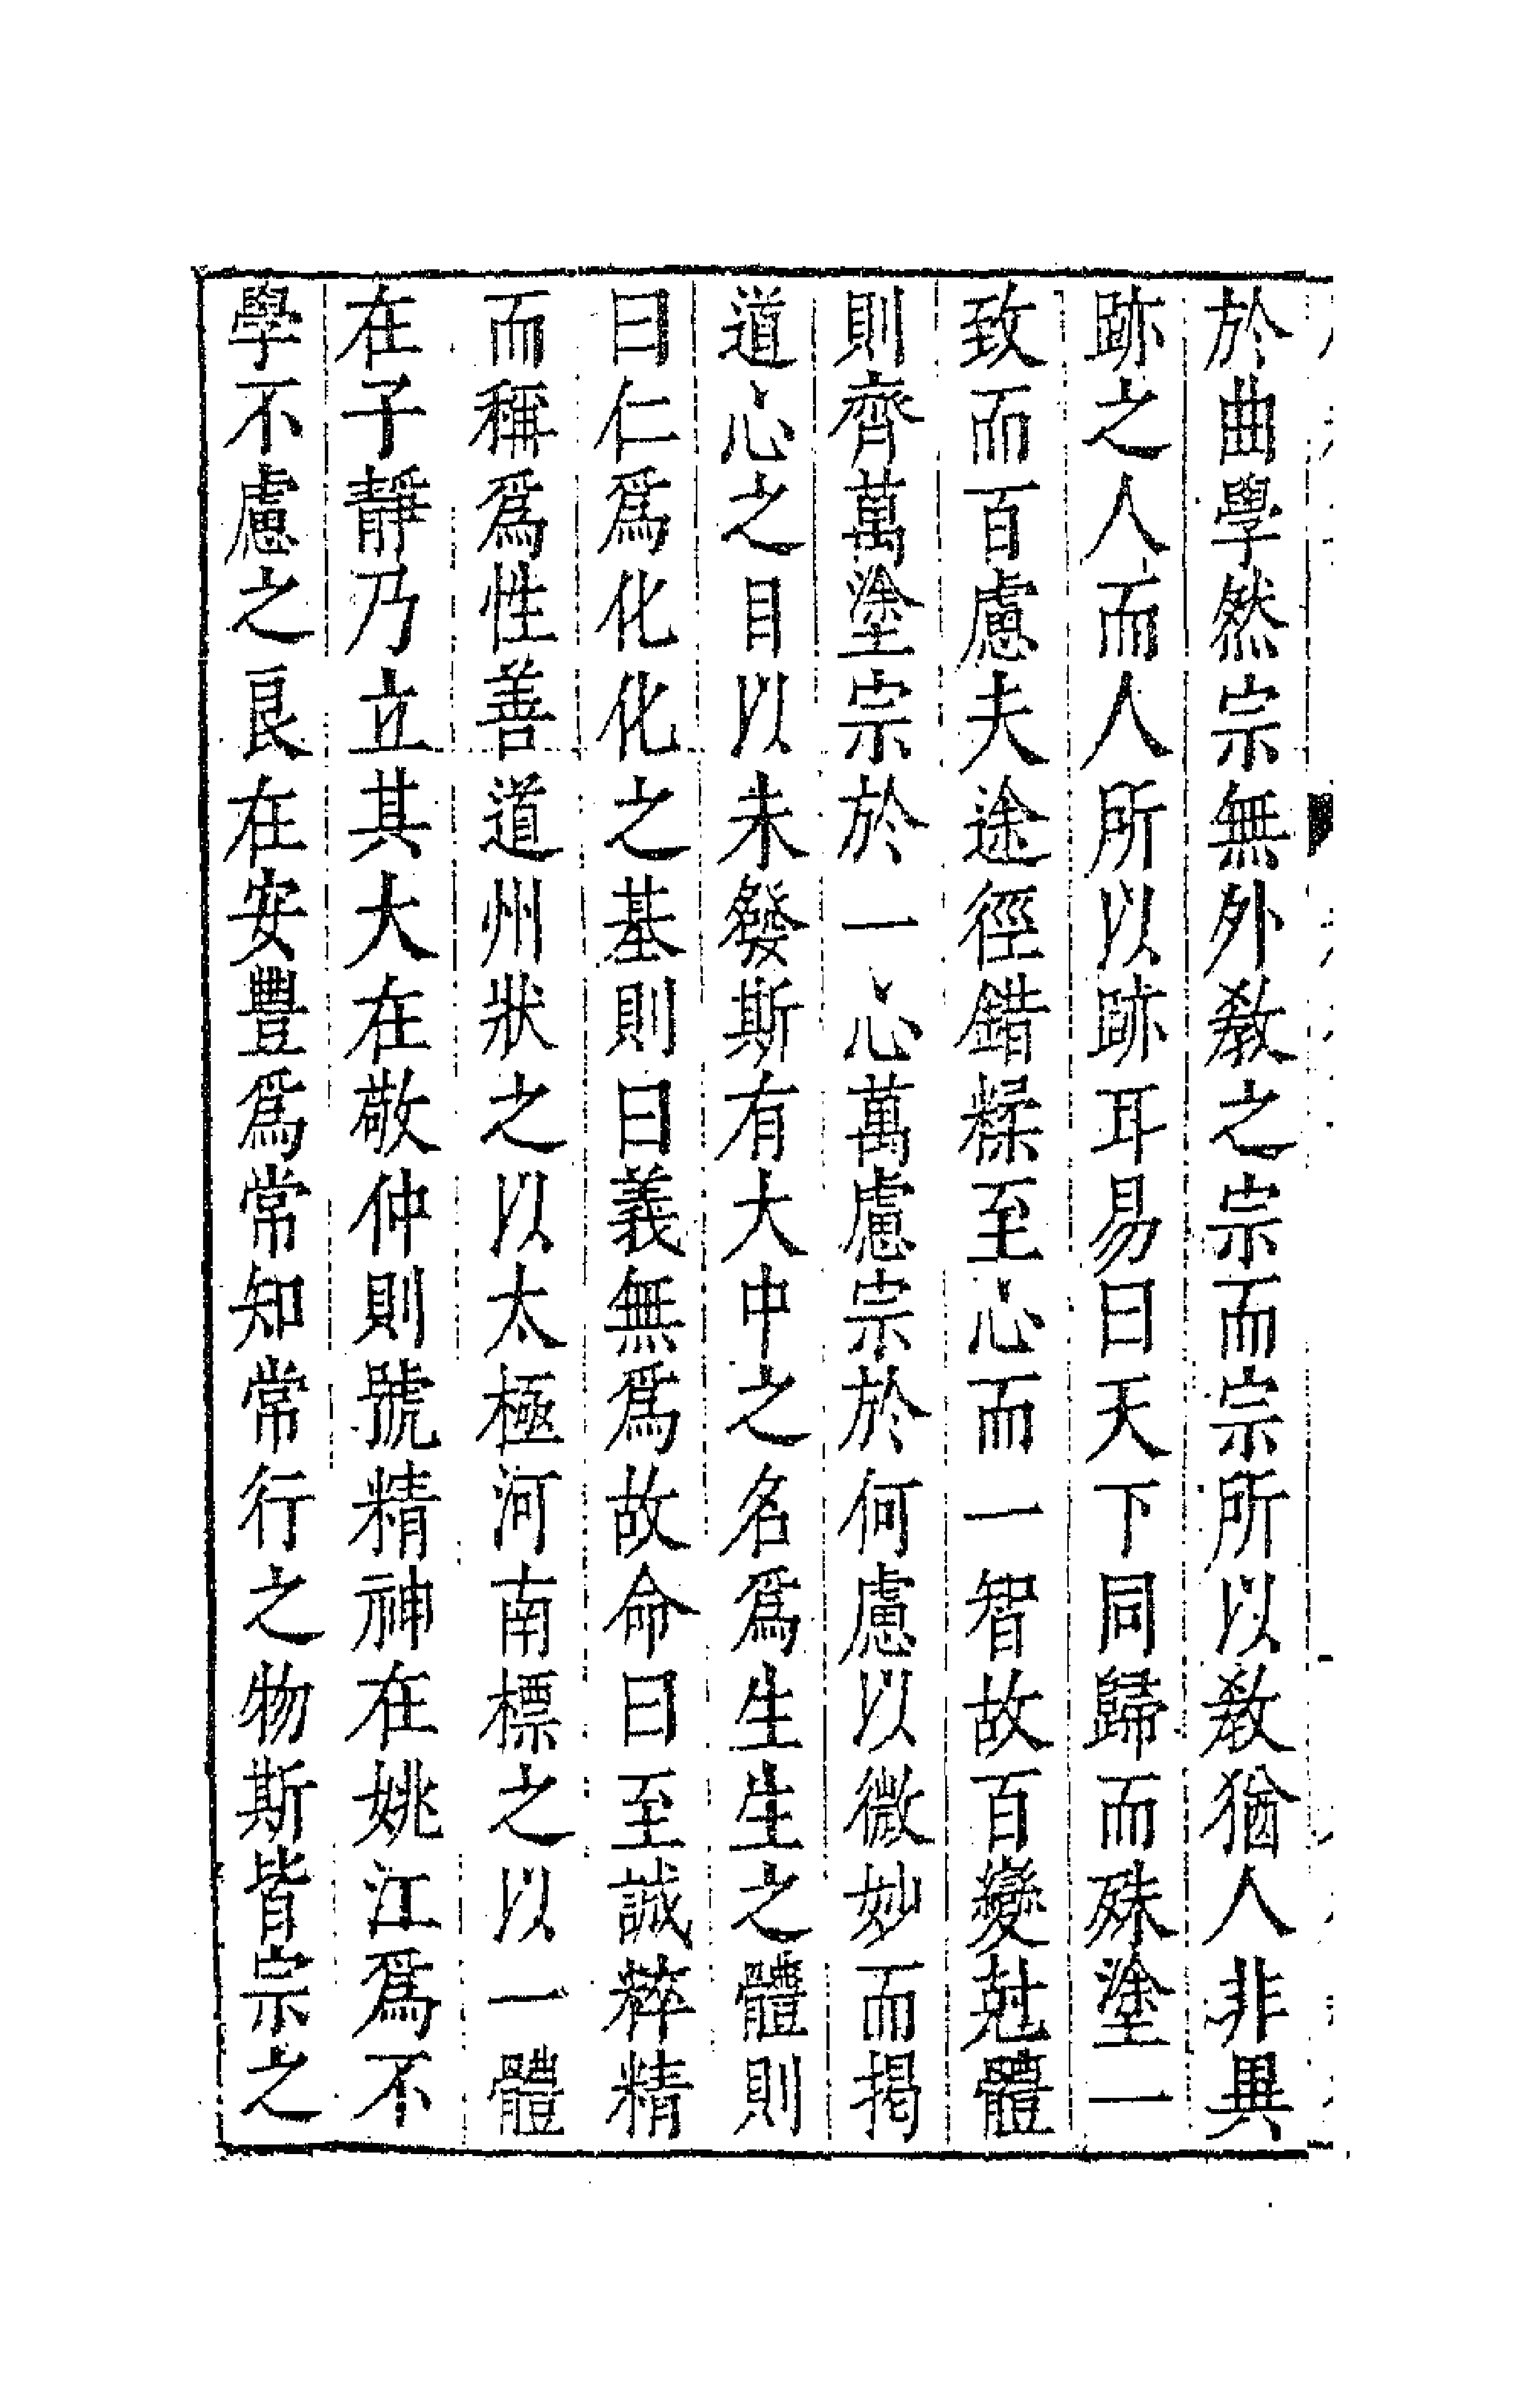 於曲學然宗無外教之宗而宗所以教猶人非異
跡之人而人所以跡耳易曰天下同歸而殊塗一
致而百慮夫途徑錯糅至心而一智故百變兢體
則齊萬塗宗於一心萬慮宗於何慮以微妙而揭
道心之目以未發斯有大中之名爲生生之體則
曰仁爲化化之基則曰義無爲故命曰至誠粹精
而稱爲性善道州狀之以太極河南標之以一體
在子靜乃立其大在敬仲則號精神在姚江爲不
學不慮之良在安豐爲常知常行之物斯皆宗之